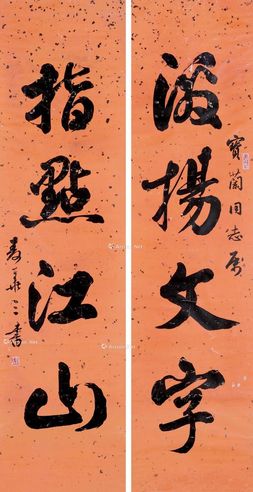 寶蘭同志属
激揚文字
指點江山
書